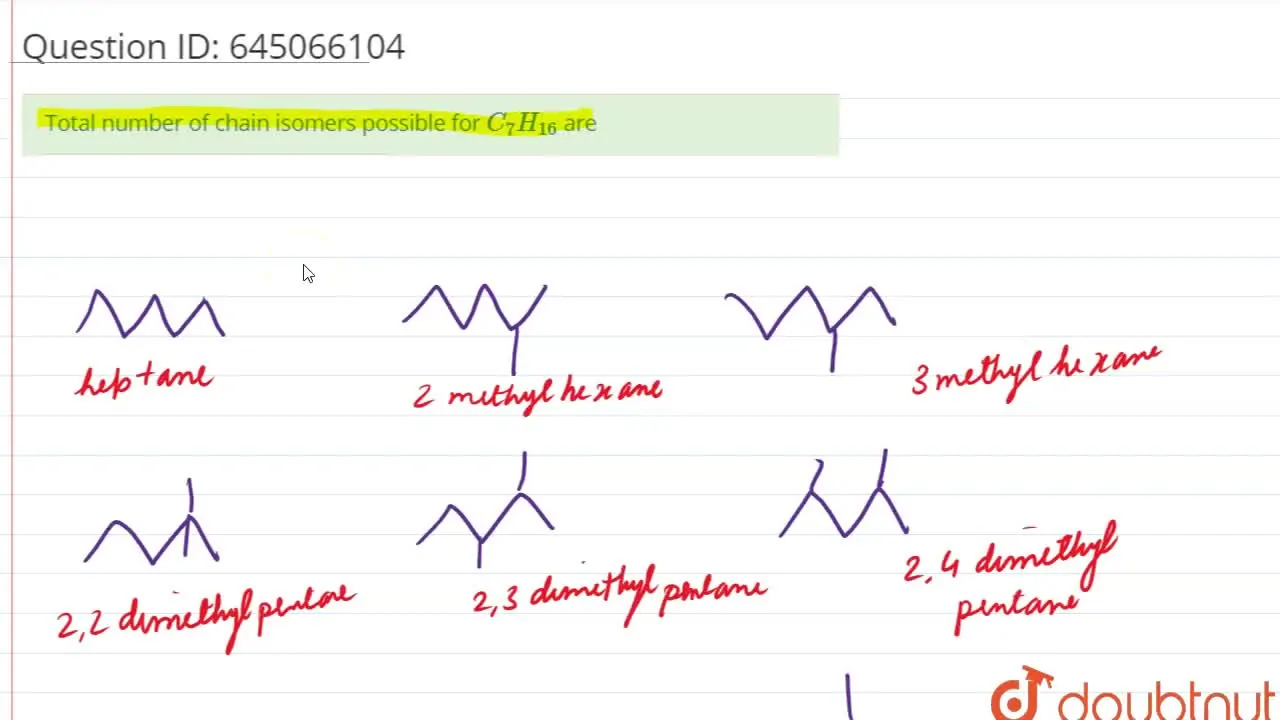 Question ID: 645066104
Total number of chain isomers possible for C₇H₁₆ are
heptane
2 methyl hexane
3 methyl hexane
2,2 dimethyl pentane
2,3 dimethyl pentane
2,4 dimethyl
pentane
doubtnut